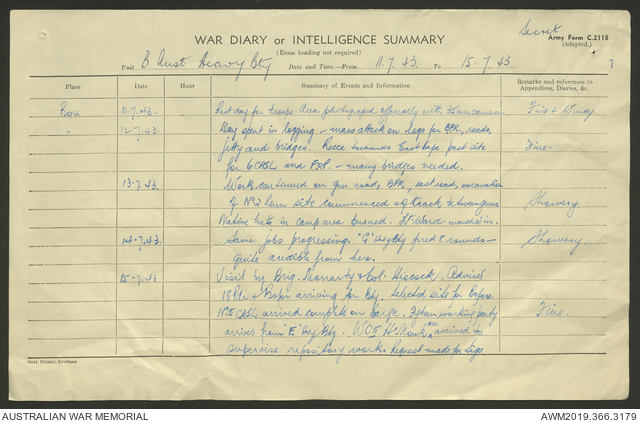 Secret
Army Form C.2118
(adapted.)
WAR DIARY or INTELLIGENCE SUMMARY
(Erase heading not required)
Unit B Aust Heavy Bty Date and Time—From 11.7.43. To 15.7.43.
7
Place Date Hour Summary of Events and Information Remarks and references to
Appendices, Diaries, &c.
11.7.43. Rest day for troops. Area photographed officially with 35mm camera Fine & Windy
" 12.7.43. Day spent in logging – mass attack on logs for BPR, roads,
jetty and bridges. Recce towards East Cape past site Fine.
for 6 CASL and F.O.P. – many bridges needed.
13.7.43. Work continued on gun road, BPR, east road, excavation
of No 2 Gun site commenced & track between guns Showery.
Native huts in camp area burned. Lt Ward marched in.
14.7.43. Same jobs progressing. "G" Hvy Bty fired 8 rounds – Showery
quite audible from here.
15.7.43 Visit by Brig. Moriarty & Col. Hiscock. Advised
18 Pdr & Bofor arriving for Bty. Selected site for Bofors.
No 5 CASL arrived complete on barge. working party Fine.
arrives from "E" Hvy Bty. WO II arrived to
supervise repository work. Request made for Sigs
Govt. Printer, Brisbane
AUSTRALIAN WAR MEMORIAL
AWM2019.366.3179